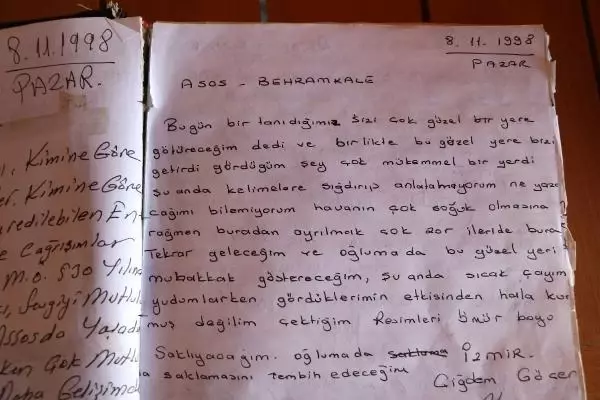 8.11.1998
PAZAR.
, Kimine Göre
Kimine Göre
redilebilen En
e Çağrışımlar
M.Ö. 530 Yılına
Sevgiyi Mutlu
Assosda Yaşadı
ken Çok Mutlu
Daha Gelişimde
8.11.1998
PAZAR
ASOS - BEHRAMKALE
Bugün bir tanıdığımız sizi çok güzel bir yere
götüreceğim dedi ve birlikte bu güzel yere bizi
getirdi gördüğüm şey çok mükemmel bir yerdi
şu anda kelimelere sığdırıp anlatalmayorum ne yaza
cağımı bilemiyorum havanın çok soğuk olmasına
rağmen buradan ayrılmak çok zor ileride bura
Tekrar geleceğim ve oğlumada bu güzel yeri
mubakkak göstereceğim, şu anda sıcak çayım
yudumlarken gördüklerimin etkisinden hala kur
muş değilim çektiğim Resimleri ömür boyo
Saklıyacağım. oğlumada İzmir.
saklamasını tembih edeceğim
Çiğdem Göçer